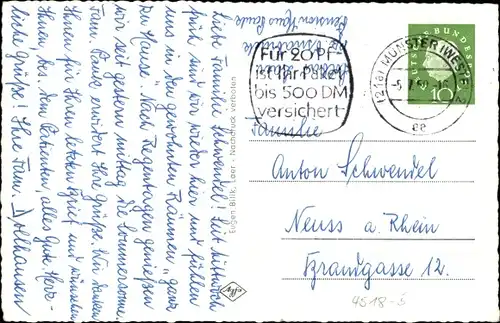 Pension Haus Dank
Liebe Familie Schwendel! Seit Mittwoch
früh sind wir wieder hier und fühlen
uns in den gewohnten Räumen „ganz
zu Hause". Nach Regentagen genießen
wir seit gestern mittag die Sommersonne.
Fam. Dank erwidert Ihre Grüße. Wir danken
Ihnen für Ihren letzten Brief und wünschen
Ihnen, bes. dem Patienten, alles Gute. Herz-
liche Grüße! Ihre Fam. Dollhausen
Eugen Bilik, Laer - Nachdruck verboten
Für 20 Pf
ist Ihr Paket
bis 500 DM
versichert
(21a) MÜNSTER (WESTF) 2
-5.7.60
ee
DEUTSCHE BUNDESPOST
10
Familie
Anton Schwendel
Neuss a. Rhein
Brandgasse 12.
4518-5